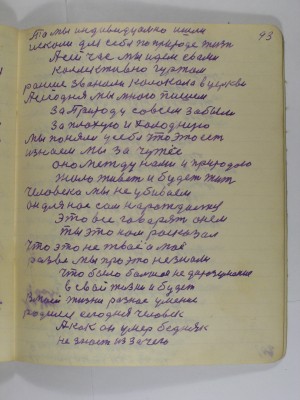 43
То мы индивидуально ишли
искали для себе по природе жизн
А сей час мы идем сами
коллективно гуртом
раньше звонили колокола в церкви
А сегодня мы много пишем
за Природу совсем забыли
За плохую и холодную
мы поняли у себе это это ест
изнаем мы за чужее
оно между нами и природою
жило живет и будет жит
Человека мы не убиваем
он для нас сам нарождающий
Это все говорят о нем
ты это нам рассказал
Что это не твое а мое
разве мы про это не знали
что было больное недоразумения
в свой жизни и будет
В моей жизни разное умение
родился сегодня человек
А как он умер бедняк
не знает из за чего